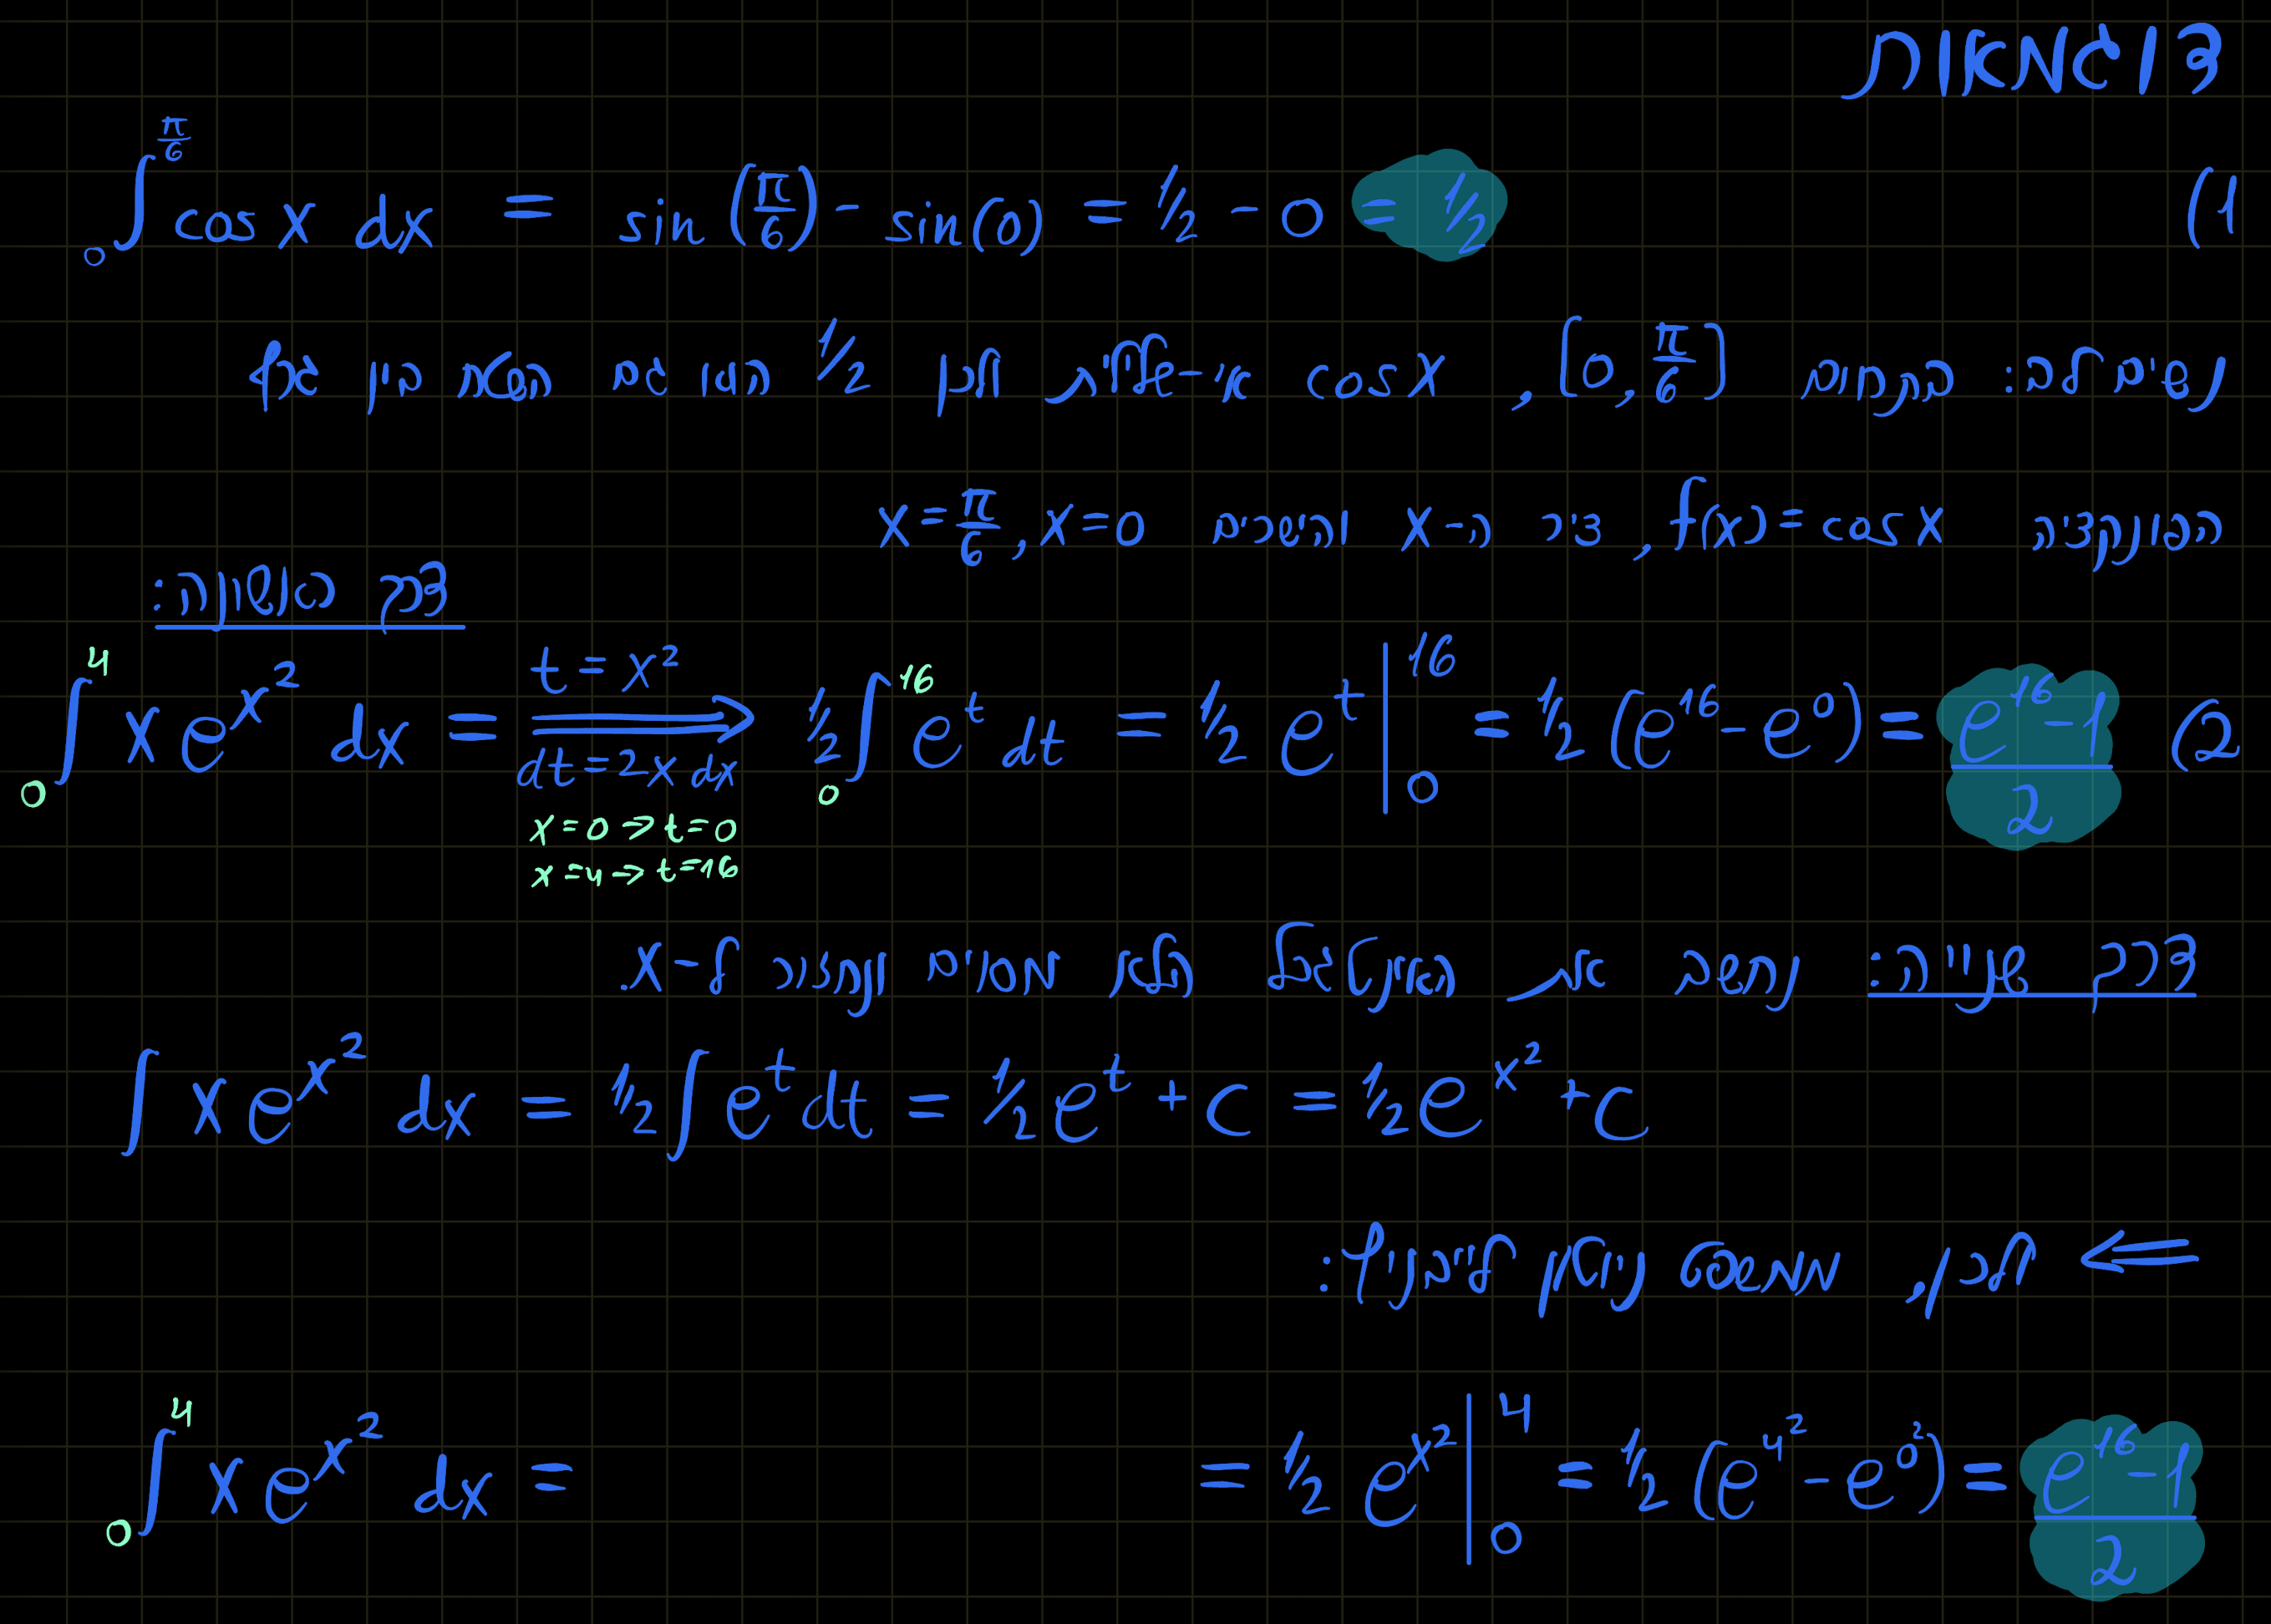 דוגמאות
1) \int_0^{\frac{\pi}{6}} cos x dx = sin(\frac{π}{6}) - sin(0) = 1/2 - 0 = 1/2
נשים לב: בתחום [0, \frac{π}{6}], cos x אי-שלילית ולכן 1/2 הוא גם השטח בין גרף
הפונקציה f(x) = cos x, ציר ה-x והישרים x=0, x=\frac{π}{6}
דרך ראשונה:
2) \int_0^4 x e^{x^2} dx = t = x^2 ⟹ dt = 2x dx \frac{1}{2} \int_0^{16} e^t dt = 1/2 e^t |_0^{16} = 1/2 (e^{16} - e^0) = \frac{e^{16} - 1}{2}
x=0 → t=0
x=4 → t=16
דרך שנייה: נחשב את האינטגרל הלא מסוים ונחזור ל-x.
\int x e^{x^2} dx = 1/2 \int e^t dt = 1/2 e^t + c = 1/2 e^{x^2} + c
⟸ לכן, המשפט נותן
\int_0^4 x e^{x^2} dx = = 1/2 e^{x^2} |_0^4 = 1/2 (e^{4^2} - e^{0^2}) = \frac{e^{16} - 1}{2}